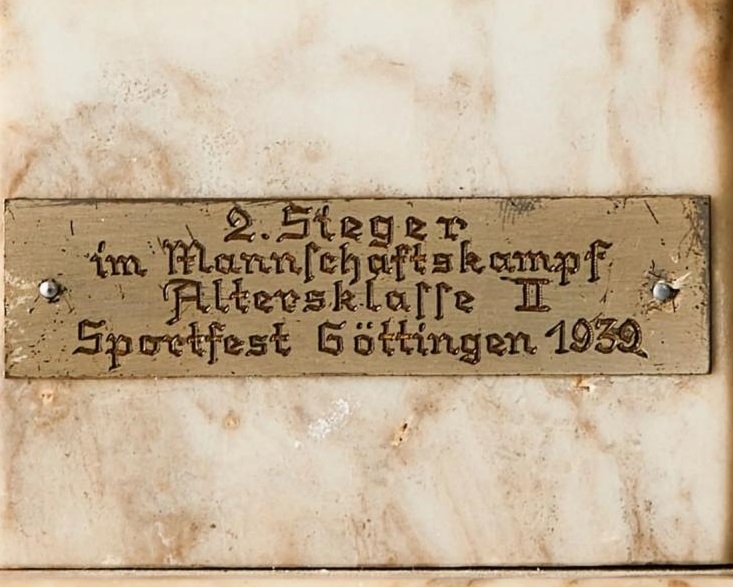 2. Sieger
im Mannſchaftskampf
Altersklaſſe II
Sportfest Göttingen 1939